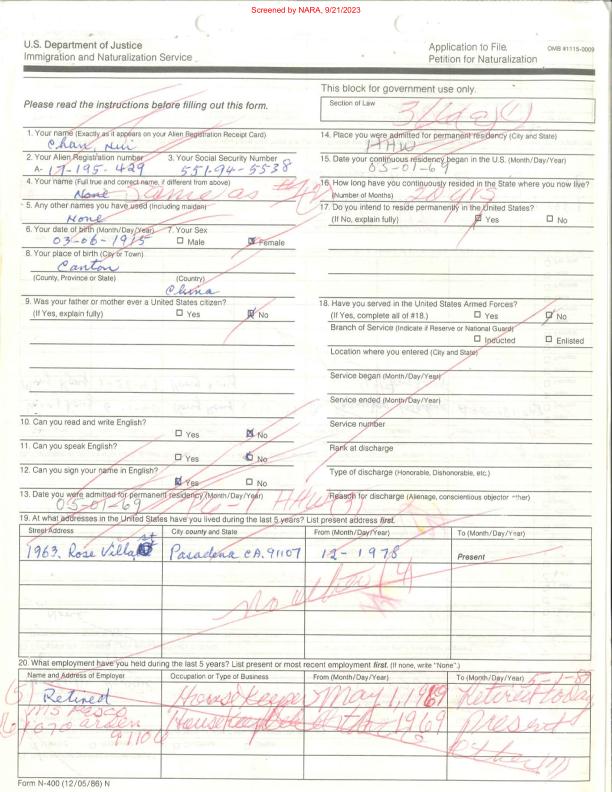 Screened by NARA, 9/21/2023
U.S. Department of Justice
Immigration and Naturalization Service
Application to File
Petition for Naturalization
OMB #1115-0009
Please read the instructions before filling out this form.
This block for government use only.
Section of Law
316(a)(1)
1. Your name (Exactly as it appears on your Alien Registration Receipt Card)
Chan, Nui
2. Your Alien Registration number
A- 17-195-429
3. Your Social Security Number
551-94-5538
4. Your name (Full true and correct name, if different from above)
None Same as #1
5. Any other names you have used (Including maiden)
None
6. Date of birth (Month/Day/Year)
03-06-1915
7. Your Sex
Male
Female
8. Your place of birth (City or Town)
Canton
(County, Province or State)
(Country)
China
9. Was your father or mother ever a United States citizen?
(If Yes, explain fully)
Yes
No
10. Can you read and write English?
Yes
No
11. Can you speak English?
Yes
No
12. Can you sign your name in English?
Yes
No
13. Date you were admitted for permanent residency (Month/Day/Year)
05-01-69 P6-1 HHW (3)
14. Place you were admitted for permanent residency (City and State)
HHW
15. Date your continuous residency began in the U.S. (Month/Day/Year)
05-01-69
16. How long have you continuously resided in the State where you now live?
(Number of Months)
20 yrs
17. Do you intend to reside permanently in the United States?
(If No, explain fully)
Yes
No
18. Have you served in the United States Armed Forces?
(If Yes, complete all of #18.)
Yes
No
Branch of Service (Indicate if Reserve or National Guard)
Inducted
Enlisted
Location where you entered (City and State)
Service began (Month/Day/Year)
Service ended (Month/Day/Year)
Service number
Rank at discharge
Type of discharge (Honorable, Dishonorable, etc.)
Reason for discharge (Alienage, conscientious objector other)
19. At what addresses in the United States have you lived during the last 5 years? List present address first.
Street Address
City county and State
From (Month/Day/Year)
To (Month/Day/Year)
1963, Rose Villa St
Pasadena CA. 91107
12-1978
Present
no other (4)
20. What employment have you held during the last 5 years? List present or most recent employment first. (If none, write "None".)
Name and Address of Employer
Occupation or Type of Business
From (Month/Day/Year)
To (Month/Day/Year)
(5) Retired
Housekeeper
May 1, 1969
Retired today
1070 Arden
91106
1969
Present
Form N-400 (12/05/86) N